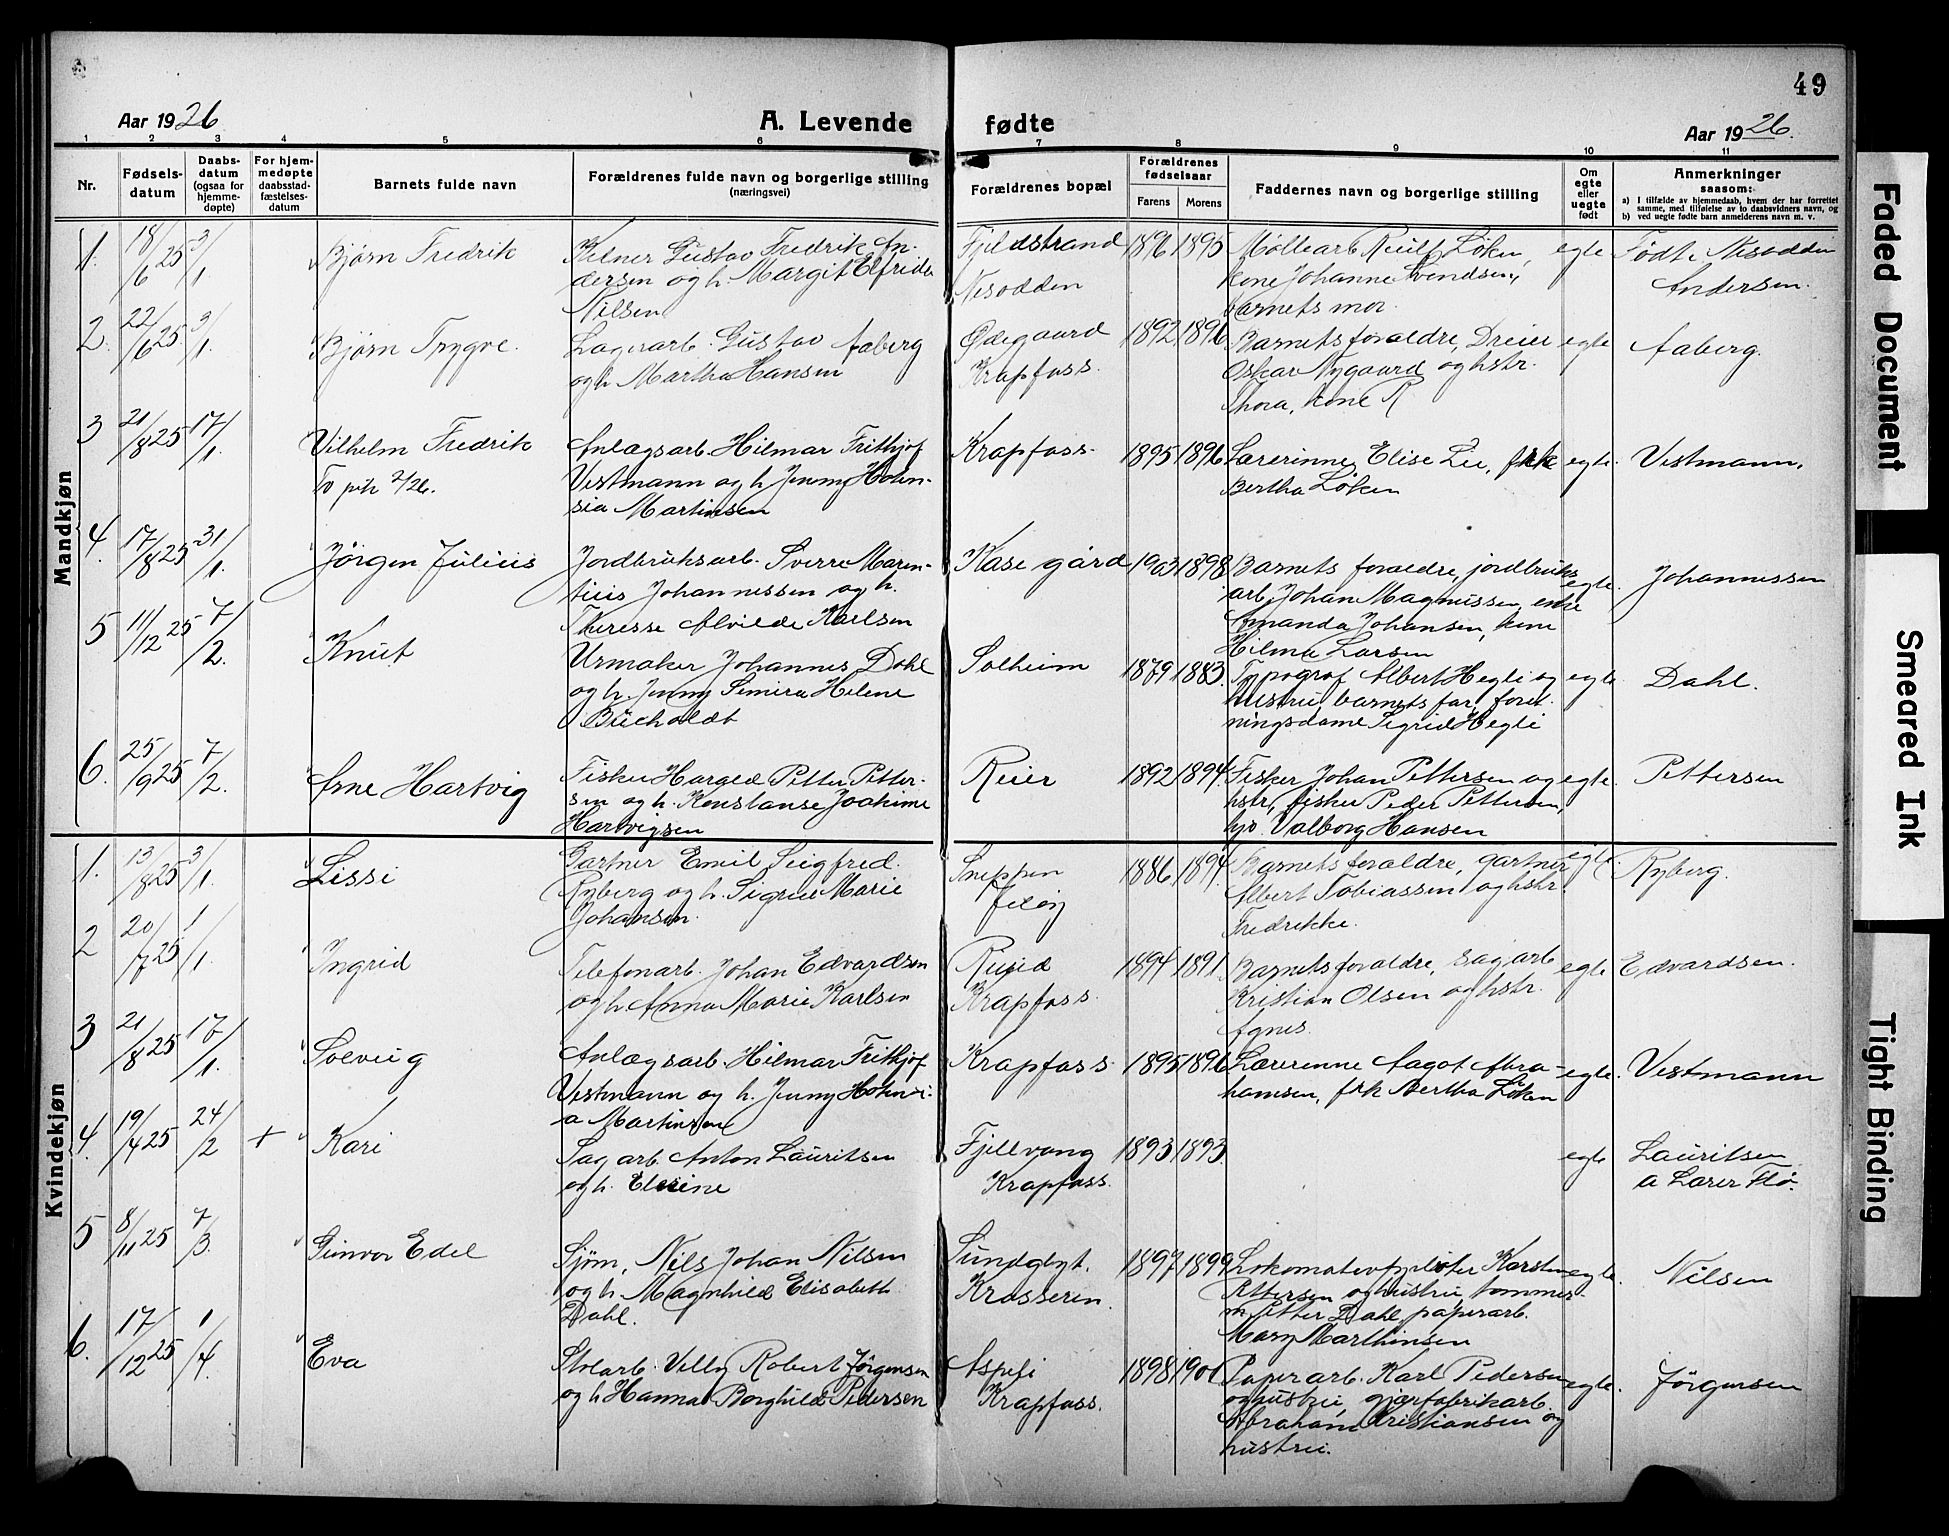 49
Aar 1926
A. Levende fødte
Aar 1926.
1 2 3 4 5 6 7 8 9 10 11
Nr.
Fødsels-datum
Daabs-datum (ogsaa for hjemme-døpte)
For hjem-medøpte daabsstad-fæstelses-datum
Barnets fulde navn
Forældrenes fulde navn og borgerlige stilling (næringsvei)
Forældrenes bopæl
Forældrenes fødselsaar
Farens
Morens
Faddernes navn og borgerlige stilling
Om egte eller uegte født
Anmerkninger
saasom:
a) I tilfælde av hjemmedaab, hvem der har forrettet samme, med tilføielse av to daabsvidners navn, og
b) ved uegte fødte barn anmelderens navn m. v.
Mandkjøn
1. 18/6 25 3/1 Bjørn Fredrik
Kelner Gustav Fredrik An-
dersen og h. Margit Elfrida
Nilsen
Fjeldstrand
Nesodden
1896 1895
Møllearb Løken,
kone Johanne Svendsen,
barnets mor
egte
Født i Nesodden
Andersen.
2. 22/6 25 3/1 Bjørn Trygve.
Lagerarb. Gustav Aaberg
og h. Martha Hansen
Ødegaard
Krapfoss.
1892 1896
Barnets forældre, Dreier
Oskar Nygaard og hstr.
Thora, kone R
egte
Aaberg.
3 21/8 25 17/1 Vilhelm Fredrik
Anlægsarb. Hilmar Frithjof
Vestmann og h. Jenny Hoten-
sia Martinsen
Krapfoss.
1895 1896
Lærerinne Elise Lie, frk
Bertha Løken
egte.
Vestmann.
4. 17/8 25 31/1 Jörgen Julius
Jordbruksarb. Sverre Maren-
tius Johannessen og h.
Therese Alvilde Karlsen
Kase gård
1903 1898
Barnets foreldre, jordbruks
arb. Johan Magnussen, enke
Amanda Johansen, kone
Hilma Larsen
egte.
Johannessen
5 11/12 25 7/2. Knut
Urmaker Johannes Dahl
og h. Jenny Helene
Bucholdt
Solheim
1879 1883.
Typograf Albert Hegli og
hustru, barnets far, foret-
ningsdame Sigrid Hegli
egte
Dahl.
6. 25/9 25 7/2. Arne Hartvig
Fisker Petter Petter-
sen og h. Konstanse Joakime
Hartvigsen
Reier
1892 1894.
Fisker Johan Pettersen og
hstr, fisker Peder Pettersen,
Valborg Hansen
egte.
Pettersen
Kvindekjøn
1. 13/8 25 3/1. Lissi
Gartner Emil Seigfred
Ryberg og h. Sigrid Marie
Johansen.
Sneppen
Jeløy
1886 1894.
Barnets foreldre, gartner
Albert Tobiassen og hstr.
Fredrikke.
egte.
Ryberg.
2 20/7 25 1/1 Ingrid
Telefonarb. Johan Edvardsen
og h. Anna Marie Karlsen
Krapfoss.
1894 1891.
Barnets foreldre, sagarb
Kristian Olsen og hstr.
Agnes.
egte
Edvardsen.
3 21/8 25 17/1. Solveig
Anlægsarb. Hilmar Frithjof
Vestmann og h. Jenny Hotensi-
a Martinsen
Krapfoss
1895 1896
Lærerinne Aagot Abra-
hamsen, frk Bertha Løken
egte.
Vestmann
4. 19/4 25 24/2 + Kari
Sagarb. Anton Lauritsen
og h.
Fjellvang
Krapfoss.
1893 1893.
egte
Lauritsen
a Lærer Flø.
5 8/11 25 7/3. Gunvor Edel
Sjøm. Nils Johan Nilsen
og h. Magnhild Elisabeth
Dahl.
Sundgbyt.
Krosseren.
1897 1899
Lokomotivfyrbøter Karsten
Pettersen og hustru, tømmer-
m. Petter Dahl, papirarb.
Mary Marthinsen
egte.
Nilsen
6. 17/12 25 1/4. Eva
Stolarb. Villy Robert Jørgensen
og h Hanna Borghild Pedersen
Krapfoss.
1898
Papirarb. Karl Pedersen
og hustru,
Abraham Kristiansen og
hustru.
egte.
Jørgensen
Faded Document
Smeared Ink
Tight Binding